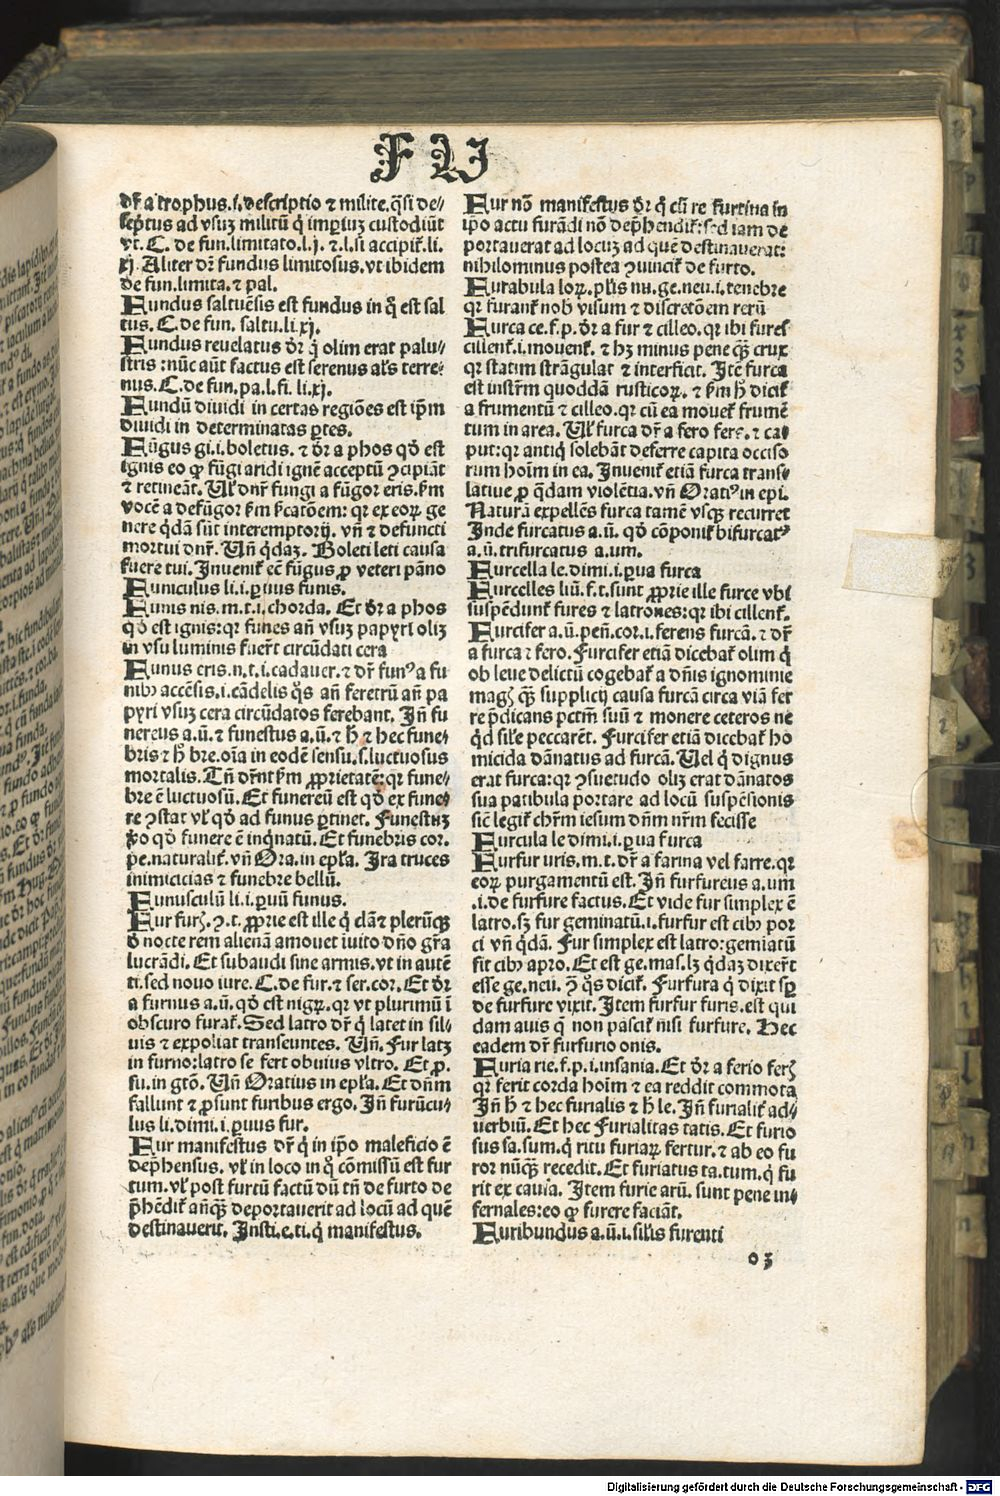 F U
dr̄ a trophus.i.descriptio ⁊ milite.q̄si de-
scriptus ad vsuꝫ militū q̇ imꝑiuꝫ custodiūt
vt. C. de fun.limitato.l.ij. ⁊.l.si accipit̄.li.
xj. Aliter dr̄ fundus limitosus.vt ibidem
de fun.limita.⁊ pal.
Fundus saltuēsis est fundus in q̄ est sal
tus. C. de fun. saltu.li.xj.
Fundus reuelatus dr̄ q̇ olim erat palu-
stris : nūc aūt factus est serenus al's terre-
nus. C. de fun.pa.l.fi. li.xj.
Fundū diuidi in certas regiōes est ip̄m
diuidi in determinatas ꝑtes.
Fūgus gi.i.boletus. ⁊ dr̄ a phos qd̄ est
ignis eo ꝙ fūgi aridi ignē acceptū ꝯcipiāt
⁊ retineāt. Vl' dn̄r fungi a fūgor eris.ẜm
vocē a defūgor ẜm ẜcatōem: qꝛ ex eoꝝ ge
nere q̇dā sūt interemptorij. vn̄ ⁊ defuncti
mortui dn̄r. Vn̄ q̇daꝫ. Boleti leti causa
fuere tui. Inuenit̄ eē fūgus ꝓ veteri pāno
Funiculus li.i.ꝑuus funis.
Funis nis.m.t.i.chorda. Et dr̄ a phos
qd̄ est ignis:qꝛ funes an̄ vsuꝫ papyri oliꝫ
in vsu luminis fuer̄t circūdati cera
Funus eris.n.t.i.cadauer.⁊ dr̄ funꝰ a fu
nibꝫ accēsis.i.cādelis q̄s an̄ feretrū an̄ pa
pyri vsuꝫ cera circūdatos ferebant. Jn̄ fu
nereus a.ū.⁊ funestus a.ū.⁊ h̄ ⁊ hec fune-
bris ⁊ h̄ bre.oīa in eodē sensu.s.luctuosus
mortalis. Tn̄ dr̄nt ẜm ꝓprietatē:qꝛ fune-
bre ē luctuosū.Et funereū est qd̄ ex fune-
re ꝯstat vl' qd̄ ad funus ꝑtinet. Funestuꝫ
ꝟo qd̄ funere ē inq̇natū. Et funebris cor.
pe.naturalit̄. vn̄ Ora.in epl'a. Jra truces
inimicicias ⁊ funebre bellū.
Funusculū li.i.ꝑuū funus.
Fur furꝭ.ꝯ.t. ꝓprie est ille q̇ clā ⁊ plerūqꝫ
d̄ nocte rem alienā amouet iuito dn̄o gr̄a
lucrādi. Et subaudi sine armis.vt in autē
ti.sed nouo iure. C. de fur.⁊ ser.cor. Et dr̄
a furuus a.ū.qd̄ est nigꝝ.qꝛ vt plurimū ī
obscuro furat̄. Sed latro dr̄ q̇ latet in sil-
uis ⁊ expoliat transeuntes. Vn̄. Fur latꝫ
in furno:latro se fert obuius vltro. Et ꝓ.
fu.in gtō. Vn̄ Oratius in epl'a. Et dn̄m
fallunt ⁊ ꝓsunt furibus ergo. Jn̄ furūcu-
lus li.dimi.i.ꝑuus fur.
Fur manifestus dr̄ q̇ in ip̄o maleficio ē
dep̄hensus. vl' in loco in q̄ cōmissū est fur
tum.vl' post furtū factū dū tn̄ de furto de
p̄hēdit̄ anteqꝫ deportauerit ad locū ad quē
destinauerit. Insti.e.ti.q̇ manifestus.
Fur nō manifestus dr̄ q̇ cū re furtiua in
ip̄o actu furādi nō dep̄hendit̄:sed iam de
portauerat ad locuꝫ ad quē destinauerat:
nihilominus postea ꝯuincit̄ de furto.
Furabula loꝝ. pl'is nu.ge.neu.i.tenebre
qꝛ furant̄ nob̄ visum ⁊ discretōem rerū
Furca ce.f.p. dr̄ a fur ⁊ cilleo.qꝛ ibi fures
cillent̄.i.mouent̄. ⁊ hꝫ minus pene qꝫ crux
qꝛ statim strāgulat ⁊ interficit. Jtē furca
est instrm̄ quoddā rusticoꝝ. ⁊ ẜm h̄ dicit̄
a frumentū ⁊ cilleo.qꝛ cū ea mouet̄ frumē
tum in area. Vl' furca dr̄ a fero fers. ⁊ ca-
put:qꝛ antiq̇ solebāt deferre capita occiso
rum hoīm in ea. Inuenit̄ etiā furca trans-
latiue ꝓ q̄dam violētia. vn̄ Oratiꝰ in epi.
Naturā expellēs furca tamē vsqꝫ recurret
Inde furcatus a.ū. qd̄ cōponit̄ bifurcatꝰ
a.ū.trifurcatus a.um.
Furcella le.dimi.i.ꝑua furca
Furcelles liū.f.t.sunt ꝓprie ille furce vbi
suspēdunt̄ fures ⁊ latrones:qꝛ ibi cillent̄.
Furcifer a.ū.pen̄.cor.i.ferens furcā.⁊ dr̄
a furca ⁊ fero. Furcifer etiā dicebat̄ olim q̇
ob leue delictū cogebat̄ a dn̄is ignominie
magꝭ qꝫ supplicij causa furcā circa viā fer
re p̄dicans pctm̄ suū ⁊ monere ceteros ne
q̇d sil'e peccarēt. Furcifer etiā dicebat̄ ho
micida dānatus ad furcā. Vel q̇ dignus
erat furca:qꝛ ꝯsuetudo oliꝫ erat dānatos
sua patibula portare ad locū suspēsionis
sic̄ legit̄ chr̄m iesum dn̄m nr̄m fecisse
Furcula le dimi.i.ꝑua furca
Furfur uris.m.t.dr̄ a farina vel farre.qꝛ
eoꝝ purgamentū est. Jn̄ furfureus a.um
.i.de furfure factus. Et vide fur simplex ē
latro.sꝫ fur geminatū.i.furfur est cibꝰ por
ci vn̄ q̇dā. Fur simplex est latro:gemiatū
fit cibꝰ apro. Et est ge.mas.lꝫ q̇daꝫ dixer̄t
esse ge.neu. ꝯ q̄s dicit̄. Furfura q̇ dixit sꝑ
de furfure vixit. Item furfur furis.est qui
dam auis q̄ non pascit̄ nisi furfure. Hec
eadem dr̄ furfurio onis.
Furia rie.f.p.i.insania. Et dr̄ a ferio ferꝭ
qꝛ ferit corda hoīm ⁊ ea reddit commota
Jn̄ h̄ ⁊ hec furialis ⁊ h̄ le. Jn̄ furialit̄ ad-
uerbiū. Et hec Furialitas tatis. Et furio
sus sa.sum.q̇ ritu furiaꝝ fertur.⁊ ab eo fu
roꝛ nūqꝫ recedit. Et furiatus ta.tum.q̇ fu
rit ex causa. Item furie arū. sunt pene in-
fernales:eo ꝙ furere faciāt.
Furibundus a.ū.i.sil'is furenti
o 3
Digitalisierung gefördert durch die Deutsche Forschungsgemeinschaft - DFG